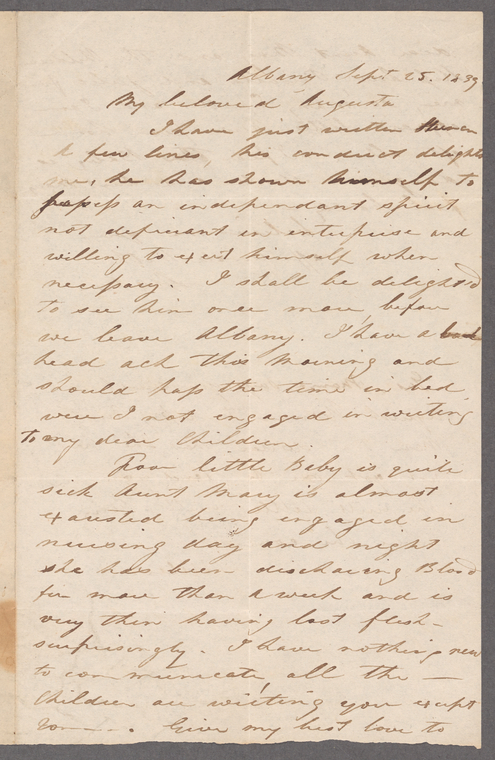 Albany Sept 25. 1839.
My beloved Augusta
I have just written Herman
a few lines, his conduct delights
me, he has shown himself to
possess an independant spirit
not deficiant in enterprise and
willing to exert himself when
necessary. I shall be delighted
to see him once more, before
we leave Albany. I have a bad
head ach this morning and
should pass the time in bed,
were I not engaged in writing
to my dear Children.
Poor little Baby is quite
sick Aunt Mary is almost
exausted being engaged in
nursing day and night
she has been discharing Blood
for more than a week and is
very thin having lost flesh
surprisingly. I have nothing new
to communicate, all the —
Children are writing you except
Tom —. Give my best love to